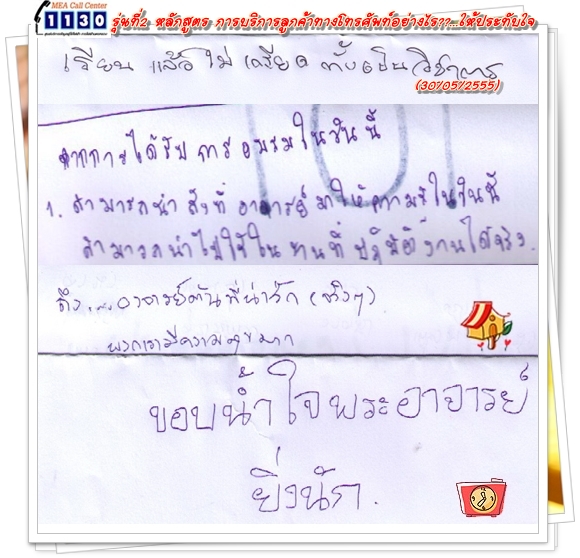 MEA Call Center
1130
รุ่นที่2 หลักสูตร การบริการลูกค้าทางโทรศัพท์อย่างไร??...ให้ประทับใจ
เรียน แล้ว ไม่ เครียด ทั้งเป็นวิชาการ
(30/05/2555)
จากการได้รับ การ อบรมในวันนี้
1. สามารถนำ สิ่งที่ อาจารย์ มาให้ความรู้ ในวันนี้
สามารถนำไปใช้ใน งานที่ ปฏิบัติงานได้จริง.
ถึง... อาจารย์ต้นที่น่ารัก (จริงๆ)
พวกเรามีความสุขมาก
ขอบน้ำใจพระอาจารย์
ยิ่งนัก.